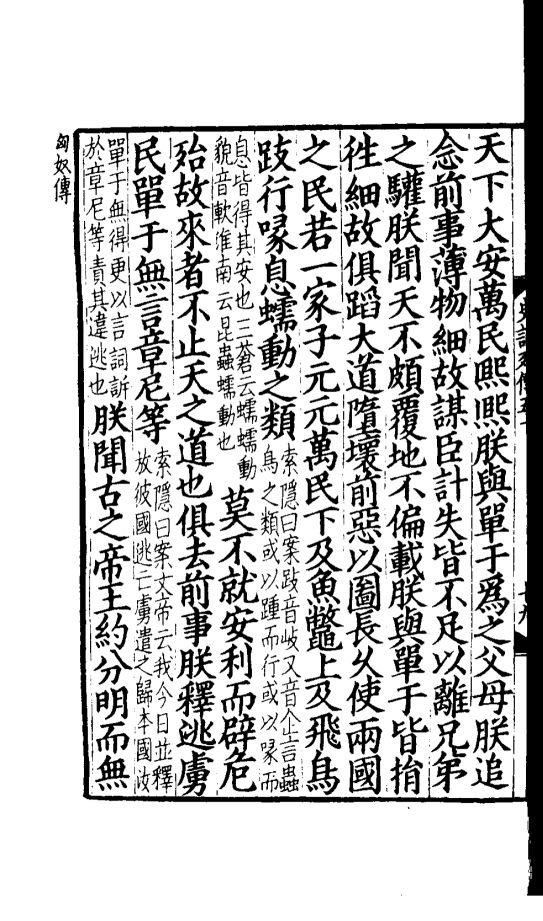 天下大安萬民熙熙朕與單于爲之父母朕追
念前事薄物細故謀臣計失皆不足以離兄弟
之驩朕聞天不頗覆地不偏載朕與單于皆捐
徃細故俱蹈大道墮壞前惡以圖長久使兩國
之民若一家子元元萬民下及魚鼈上及飛鳥
跂行喙息蠕動之類索隱曰案跂音岐又音企言蟲
鳥之類或以踵而行或以喙而
息皆得其安也三蒼云蠕蠕動
貌音軟淮南云昆蟲蠕動也莫不就安利而辟危
殆故來者不止天之道也俱去前事朕釋逃虜
民單于無言章尼等索隱曰案文帝云我今日並釋
放彼國逃亡虜遣之歸本國汝
單于無得更以言詞訴
於章尼等責其違逃也朕聞古之帝王約分明而無
匈奴傳